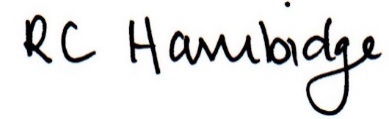 RC Hambidge